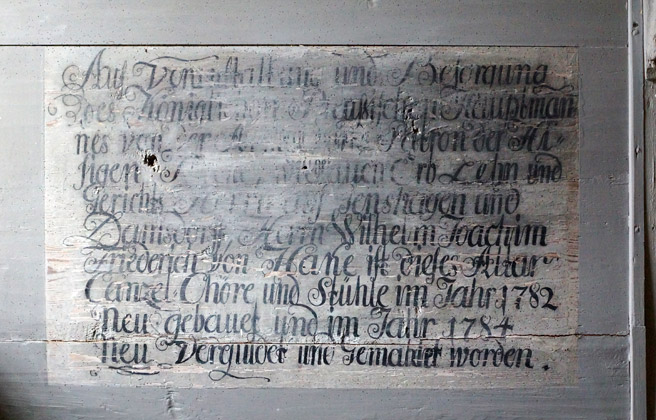 Auf Veranstaltung und Besorgung
des Königlichen Preußischen Hauptman-
nes von der Patron der Hi-
sigen Kirche Erb Lehn und
Gerichts Herrn auf Genshagen und
Damsdorff Herrn Wilhelm Joachim
Friederich von Hake ist dieses Altar
Canzel Chöre und Stühle im Jahr 1782
Neu gebauet und im Jahr 1784
Neu Verguldet und Gemahlet worden.